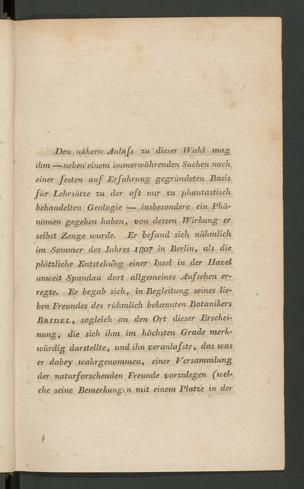 Den nähern Anlaſs zu dieser Wahl mag
ihm — neben einem immerwährenden Suchen nach
einer festen auf Erfahrung gegründeten Basis
für Lehrsätze zu der oft nur zu phantastisch
behandelten Geologie — insbesondere ein Phä-
nomen gegeben haben, von dessen Wirkung er
selbst Zeuge wurde. Er befand sich nähmlich
im Sommer des Jahres 1807 in Berlin, als die
plötzliche Entstehung einer Insel in der Havel
unweit Spandau dort allgemeines Aufsehen er-
regte. Er begab sich, in Begleitung seines lie-
ben Freundes des rühmlich bekannten Botanikers
BRIDEL, sogleich an den Ort dieser Erschei-
nung, die sich ihm im höchsten Grade merk-
würdig darstellte, und ihn veranlaſste, das was
er dabey wahrgenommen, einer Versammlung
der naturforschenden Freunde vorzulegen (wel-
che seine Bemerkungen mit einem Platze in der